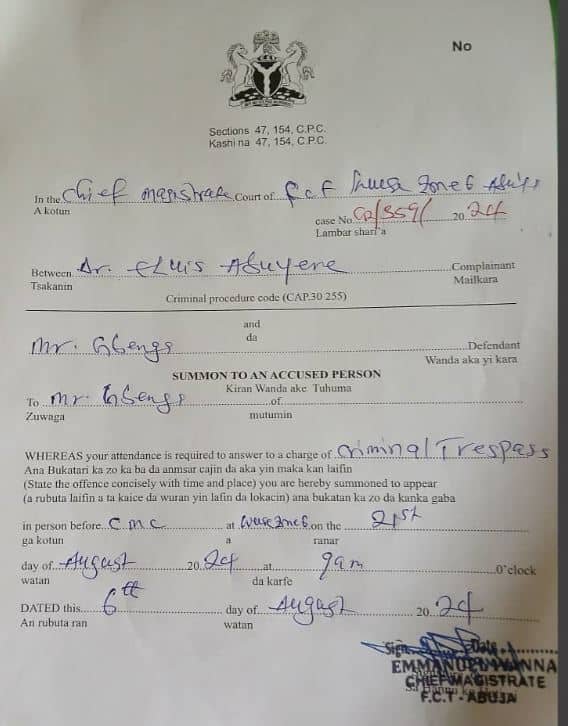 No
Sections 47, 154, C.P.C.
Kashi na 47, 154, C.P.C.
In the Chief magistrate Court of F.C.T Wuse Zone 6 Abuja
A kotun
case No. CR/359/ 20 24
Lambar shari'a
Between Dr. Eluis Abuyene Complainant
Tsakanin Mailkara
Criminal procedure code (CAP.30 255)
and
da
Mr. Gbenga Defendant
Wanda aka yi kara
SUMMON TO AN ACCUSED PERSON
Kiran Wanda ake Tuhuma
To Mr Gbenga of
Zuwaga mutumin
WHEREAS your attendance is required to answer to a charge of Criminal Trespass
Ana Bukatari ka zo ka ba da anmsar cajin da aka yin maka kan laifin
(State the offence concisely with time and place) you are hereby summoned to appear
(a rubuta laifin a ta kaice da wuran yin lafin da lokacin) ana bukatan ka zo da kanka gaba
in person before CMC at Wuse Zone 6 on the 21st
ga kotun a ranar
day of August 20 24 at 9am O'clock
watan da karfe
DATED this 6th day of August 20 24
An rubuta ran watan
Sign Date
EMMANUEL IYANNA
CHIEF MAGISTRATE
F.C.T - ABUJA